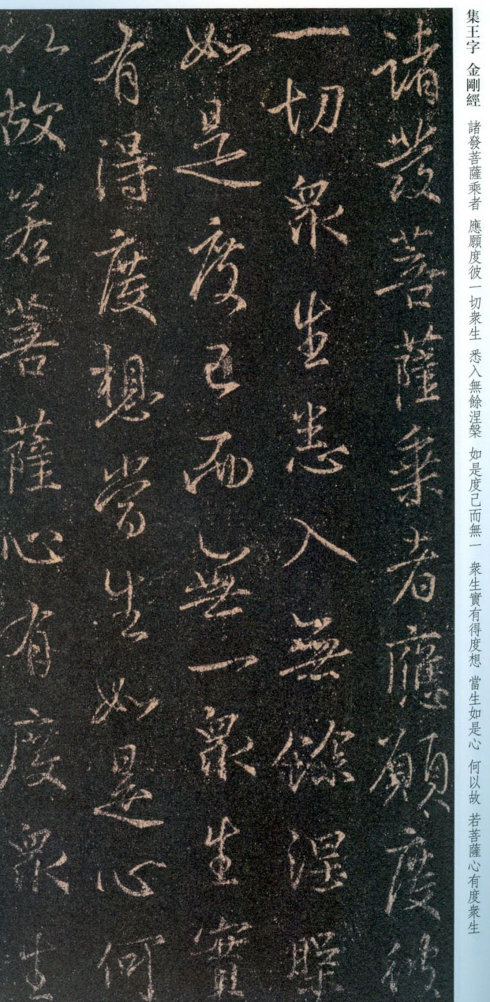 集王字 金剛經 諸發菩薩乘者 應願度彼一切衆生 悉入無餘涅槃 如是度己而無一 衆生實有得度想 當生如是心 何以故 若菩薩心有度衆生
諸發菩薩乘者應願度彼
一切衆生悉入無餘涅槃
如是度已而無一衆生實
有得度想當生如是心何
以故若菩薩心有度衆生